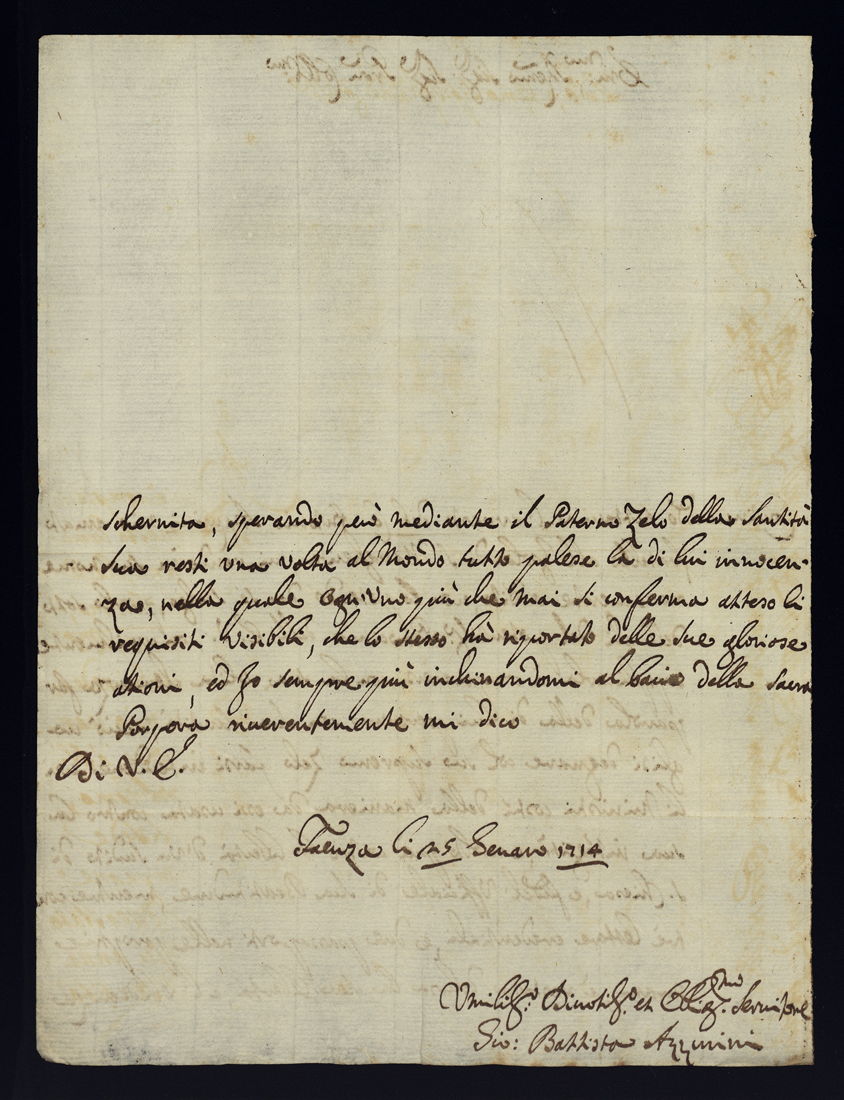 schernita, sperando però mediante il Paterno Zelo della Santità
Sua resti una volta al Mondo tutto palese la di lui innocen-
za, nella quale ogn'Uno più che mai si conferma atteso li
requisiti Visibili, che lo stesso hà riportato delle sue gloriose
ationi, ed Io sempre più inchinandomi al bacio della Sacra
Porpora riverentemente mi dico
Di V. E.
Faenza li 25 Genaro 1714
Umiliss.o Divotiss.o et Obligat.mo Servitore
Gio: Battista Azzurini